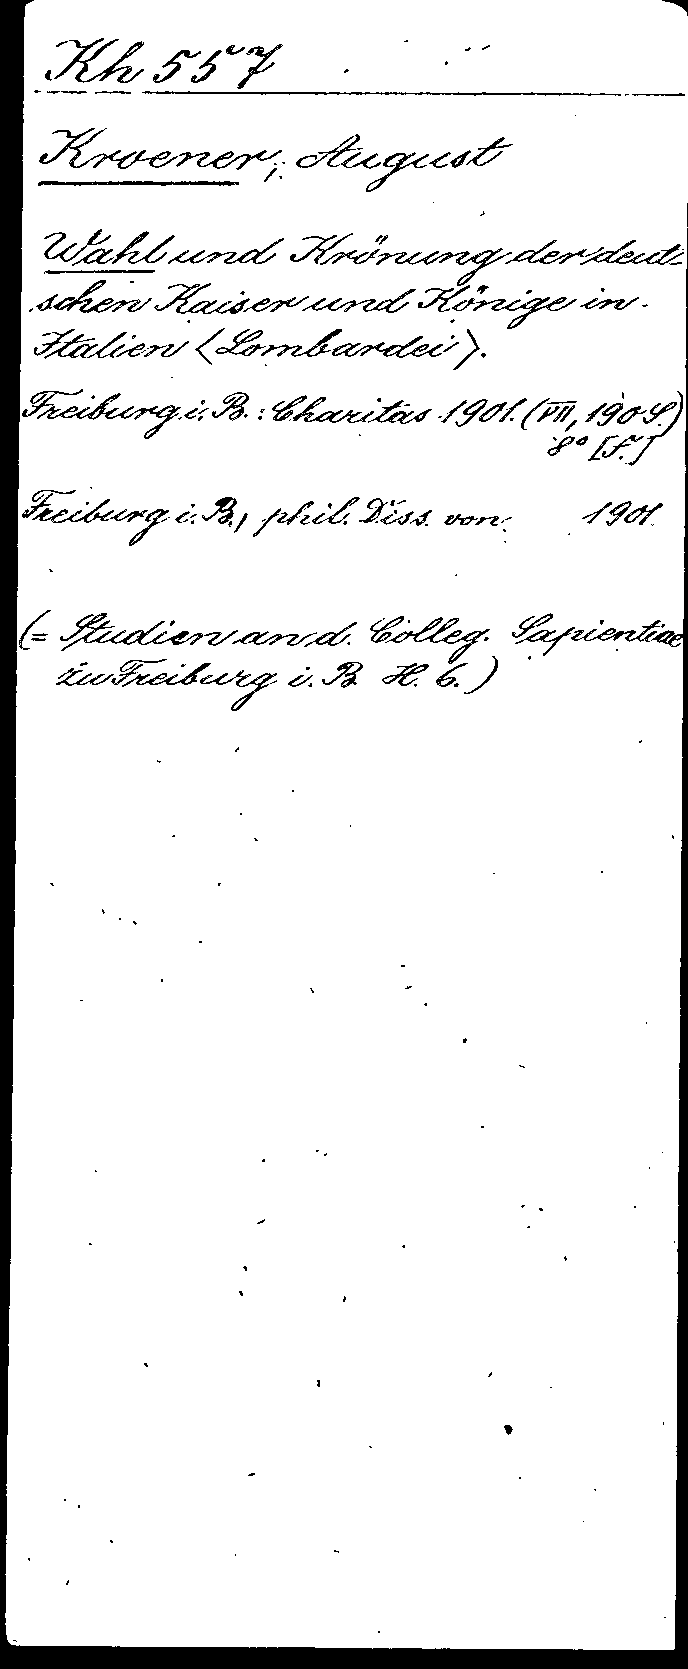 Kh 557
Kroener, August
Wahl und Krönung der deut-
schen Kaiser und Könige in
Italien <Lombardei>.
Freiburg i. B.: Charitas 1901. (VII, 190 S.)
8° [f.]
Freiburg i. B., phil. Diss. von 1901
(= Studien an d. Colleg. Sapientiae
zu Freiburg i. B. H. 6.)